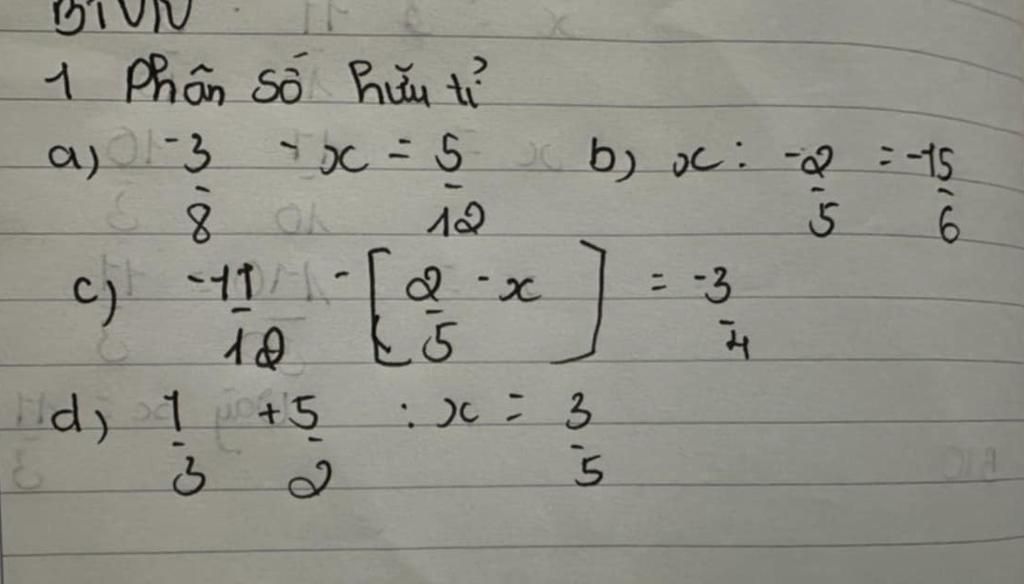 BTVN
1 Phân số hữu tỉ
a) -3/8 - x = 5/12 b) x : -2/5 = -15/6
c) -11/12 - [2/5 - x] = -3/4
d) 1/3 + 5/2 : x = 3/5